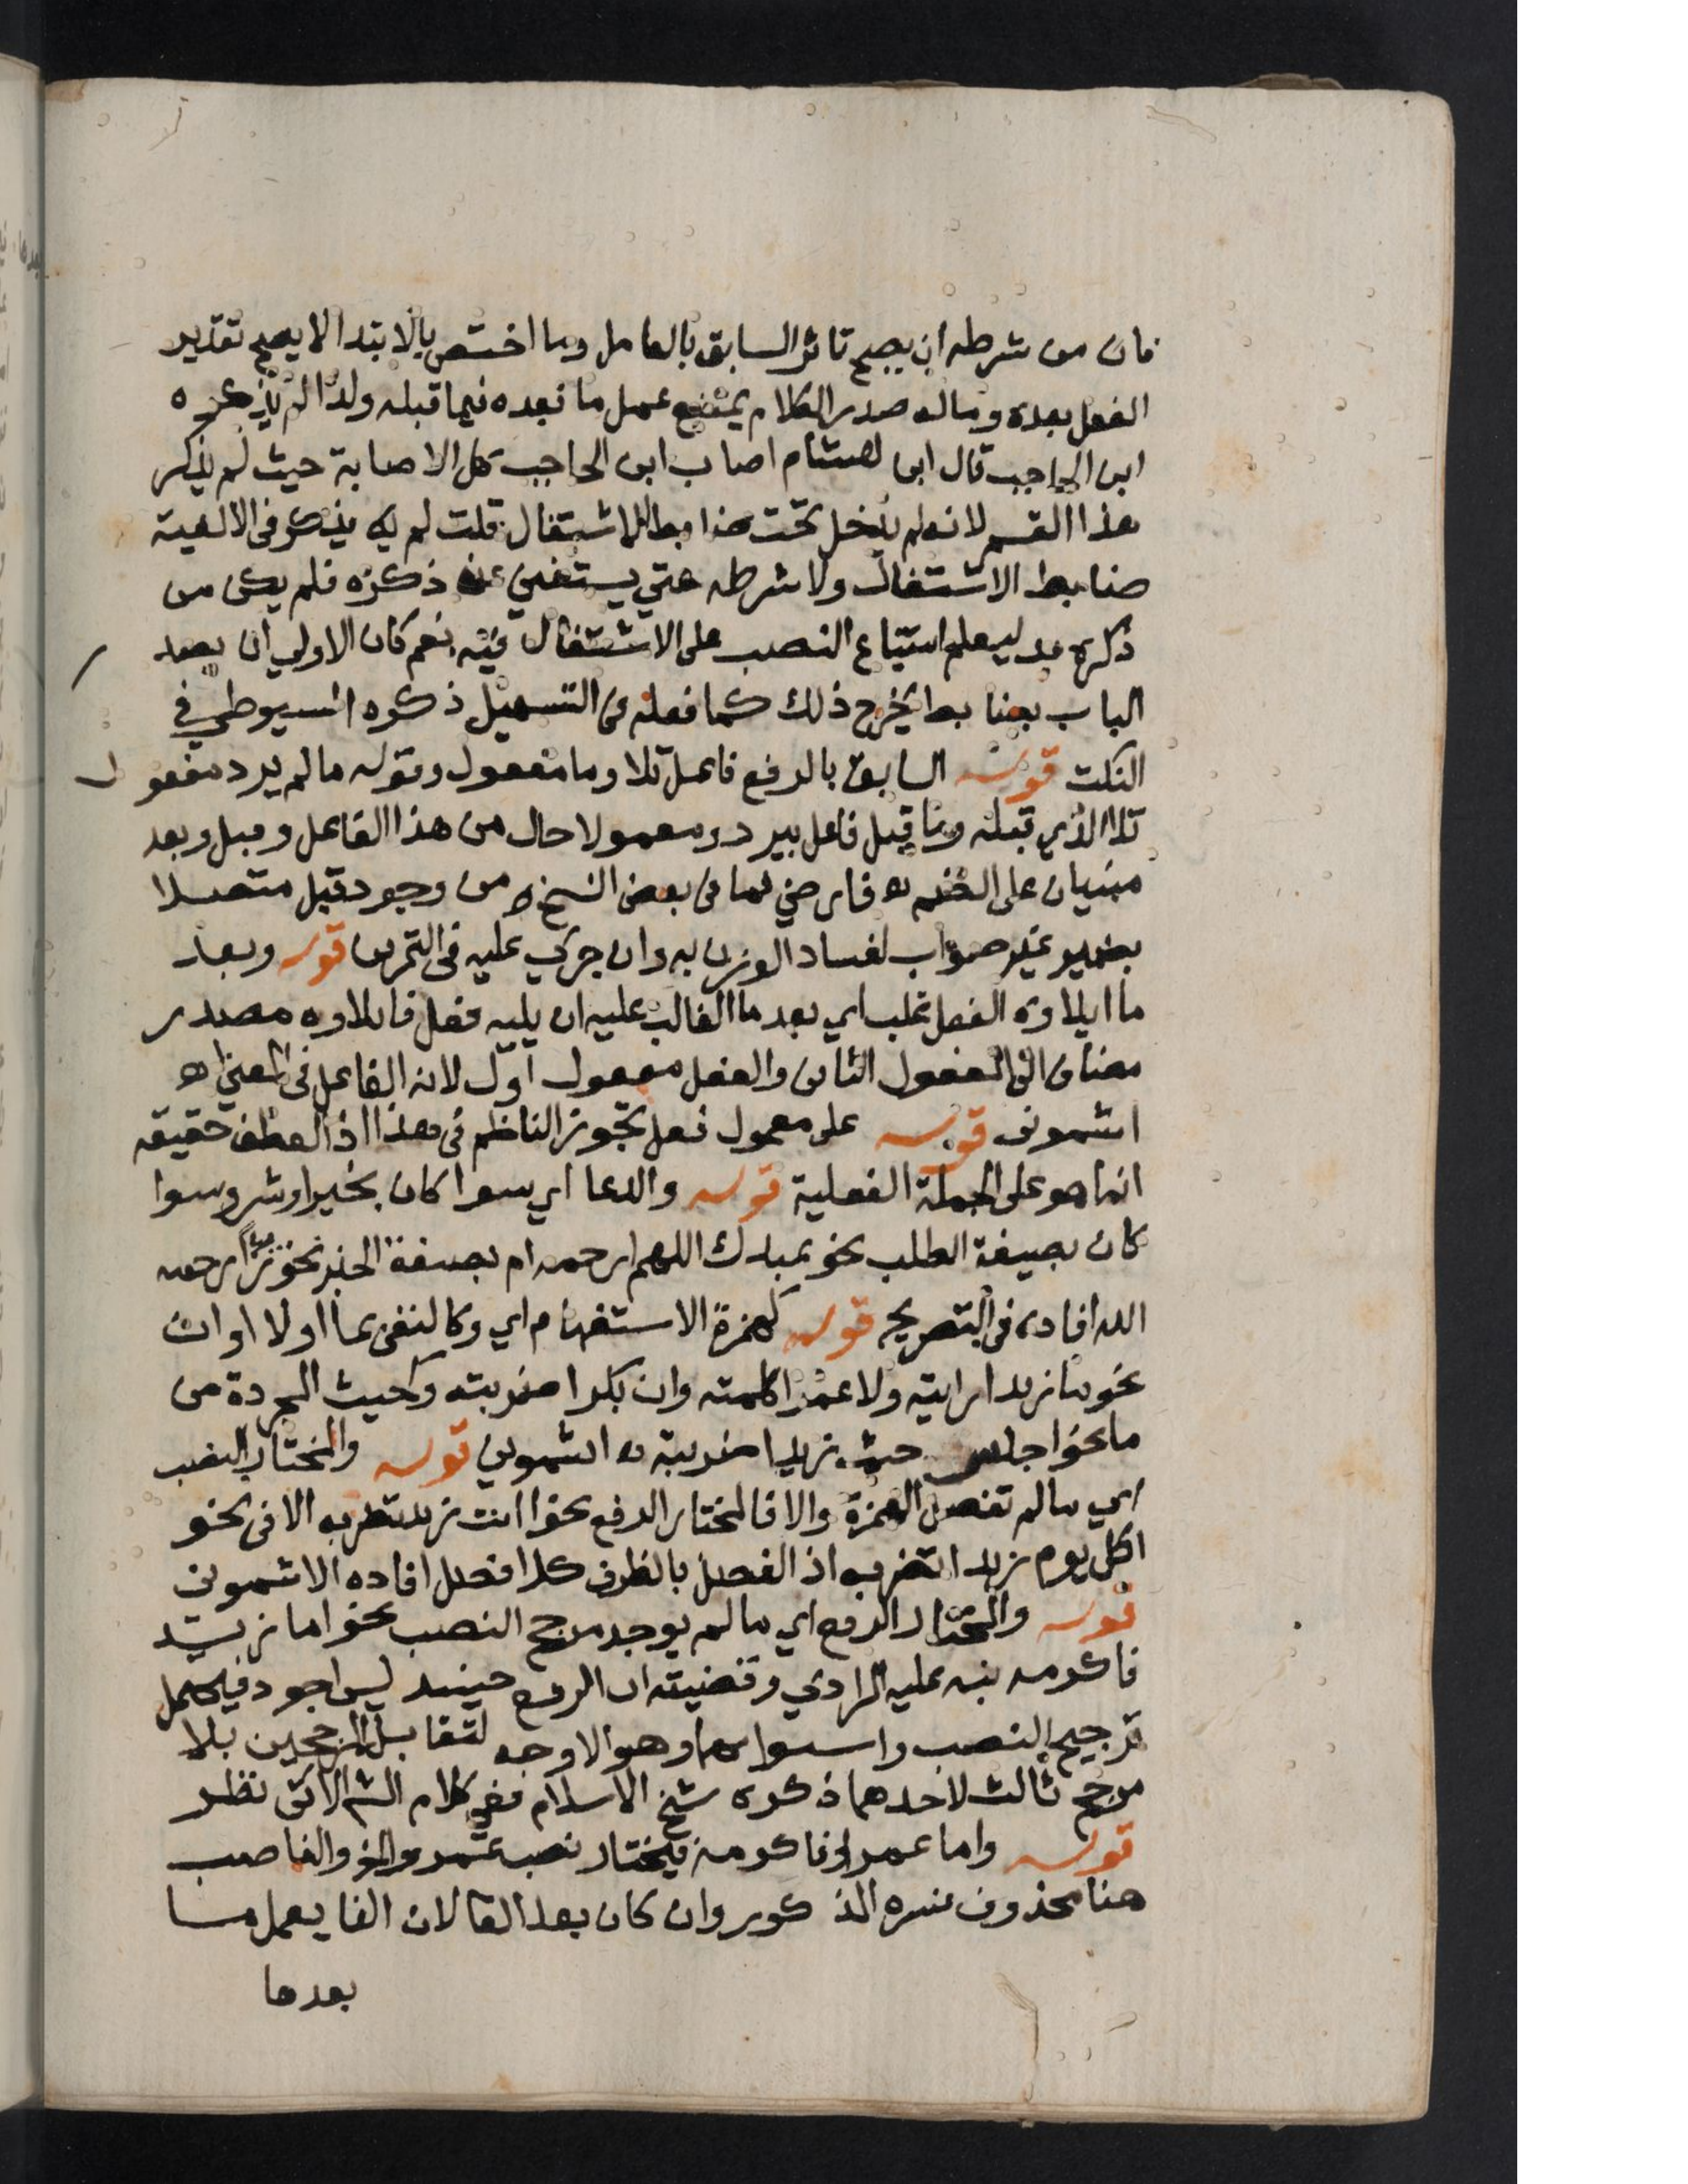 فان من شرطه ان يصح تاثر السابق بالعامل وما اختص بالابتدا لا يصح تقدير
الفعل بعده وماله صدر الكلام يمتنع عمل ما بعده فيما قبله ولذا لم يذكره
ابن الحاجب قال ابن هشام اصاب ابن الحاجب كل الاصابة حيث لم يذكر
هذا القسم لانه لم يدخل تحت ضابط الاشتغال قلت لم يذكر في الالفية
ضابط الاشتغال ولا شرطه حتي يستغني عن ذكره فلم يكن من
ذكره بد ليعلم امتناع النصب على الاشتغال فيه نعم كان الاولي ان يصد
الباب بضابط يخرج ذلك كما فعله في التسهيل ذكره السيوطي في
النكت قوله السابق بالرفع فاعل تلا وما مفعول وقوله ما لم يرد مفعول
تلا الذي قبله وما قبل فاعل يرد ومعمولا حال من هذا الفاعل وقبل وبعد
مبنيان على الضم اه فارضي فما في بعض النسخ من وجود قبل متصلا
بضمير غير صواب لفساد الوزن به وان جري عليه في التمرين قوله وبعد
ما ايلاوه الفعل غلب اي بعد ما الغالب عليه ان يليه فعل فايلاوه مصدر
مضاف الى المفعول الثاني والفعل مفعول اول لانه الفاعل في المعني اه
اشموني قوله على معمول فعل تجوز الناظم في هذا اذ العطف حقيقة
انما هو على الجملة الفعلية قوله والدعا اي سوا كان بخير او شر وسوا
كان بصيغة الطلب نحو عبدك اللهم ارحمه ام بصيغة الخبر نحو زيدا رحمه
الله افاده في التصريح قوله كهمزة الاستفهام اي وكالنفي بما او لا او ان
نحو ما زيدا رايته ولا عمرا كلمته وان بكرا ضربته وكحيث المجردة من
ما نحو اجلس حيث زيدا ضربته اه اشموني قوله والمختار النصب
اي ما لم تفصل الهمزة والا فالمختار الرفع نحو اانت زيد تضربه الا في نحو
اكل يوم زيدا تضربه اذ الفصل بالظرف كلا فصل افاده الاشموني
قوله والمختار الرفع اي ما لم يوجد مرجح النصب نحو اما زيد
فاكرمه نبه عليه المرادي وقضيته ان الرفع حينئذ ليس اجود فيحتمل
ترجيح النصب واستواهما وهو الاوجه لتقابل المرجحين بلا
مرجح ثالث لاحدهما ذكره شيخ الاسلام ففي كلام الش الاتي نظر
قوله واما عمرا فاكرمه فيختار نصب عمرو الخ والناصب
هنا محذوف يفسره المذكور وان كان بعد الفا لان الفا يعمل ما
بعدها